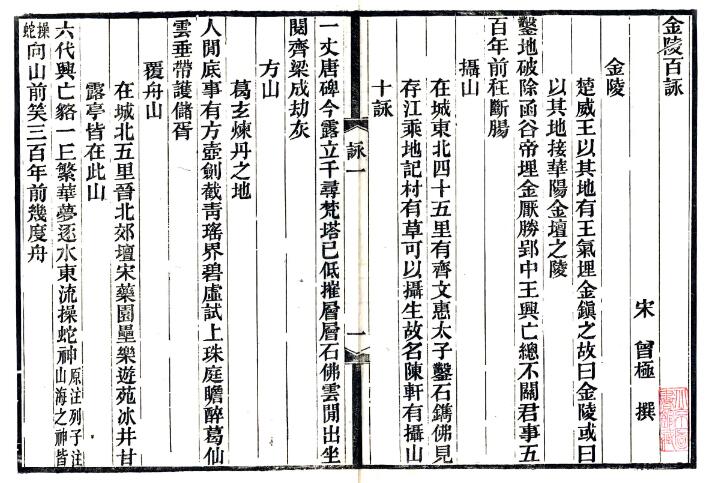 金陵百詠
宋 曾極 撰
金陵
楚威王以其地有王氣埋金鎮之故曰金陵或曰
以其地接華陽金壇之陵
鑿地破除函谷帝埋金厭勝郢中王興亡總不關君事五
百年前枉斷腸
攝山
在城東北四十五里有齊文惠太子鑿石鐫佛見
存江乘地記村有草可以攝生故名陳軒有攝山
十詠
一丈唐碑今露立千尋梵塔已低摧層層石佛雲閒出坐
閱齊梁成劫灰
方山
葛玄煉丹之地
人閒底事有方壺劍截靑瑤界碧虛試上珠庭瞻醉葛仙
雲垂帶護儲胥
覆舟山
在城北五里晉北郊壇宋藥園壘樂遊苑冰井甘
露亭皆在此山
六代興亡貉一丘繁華夢逐水東流操蛇神原注列子注山海之神皆
操蛇向山前笑三百年前幾度舟
詠一
一